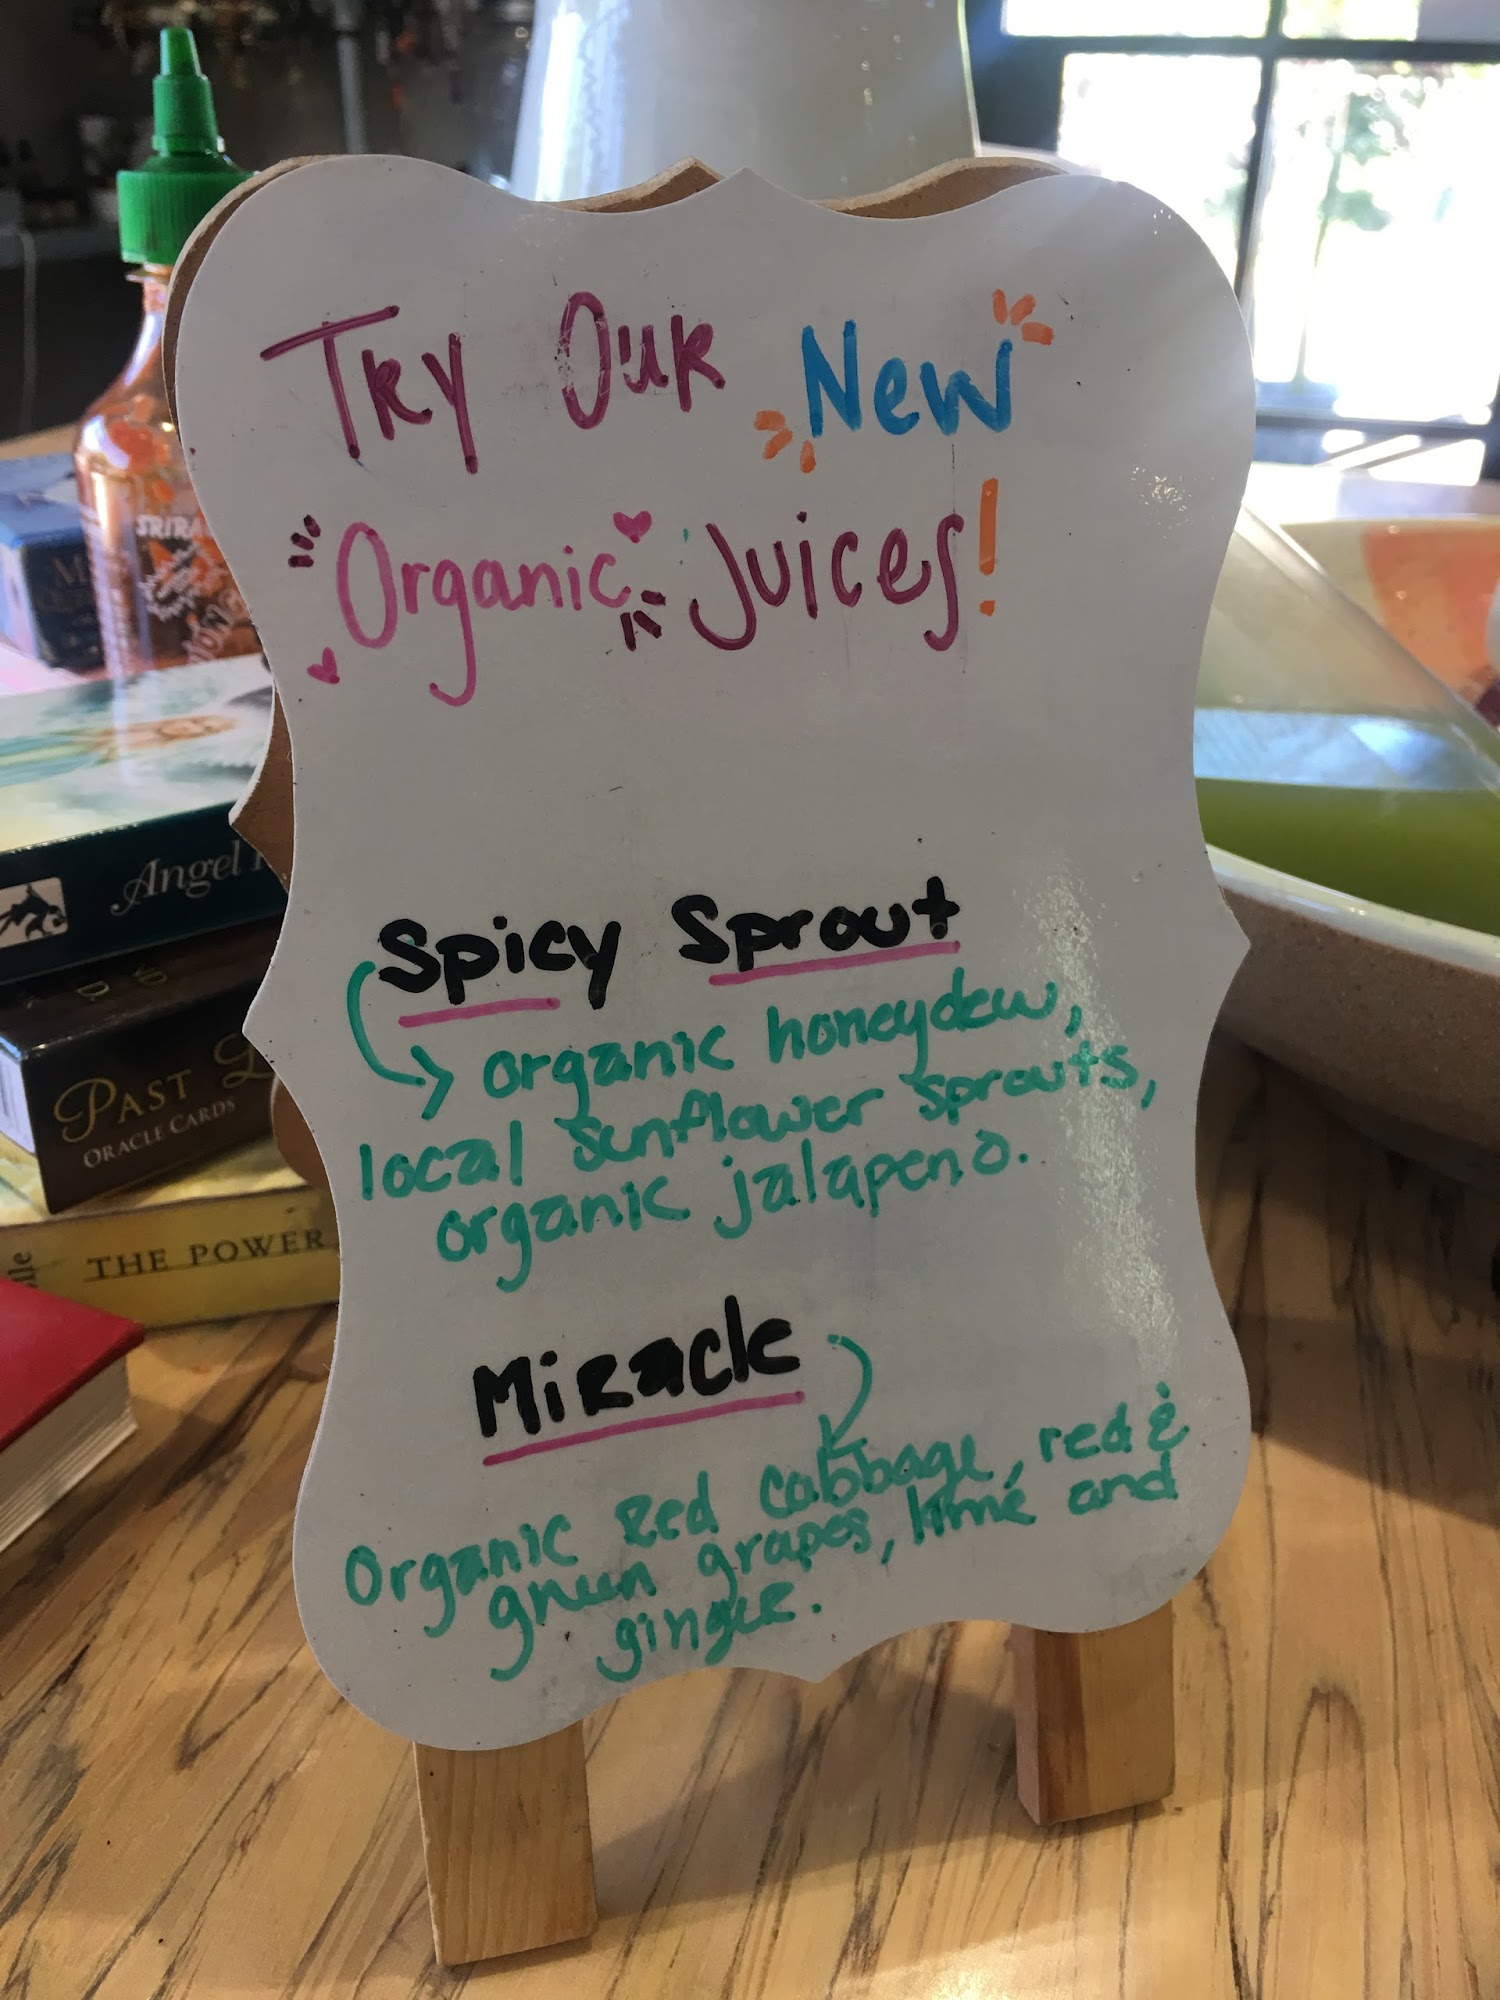 Try Our New
Organic Juices!
Spicy Sprout
organic honeydew,
local sunflower sprouts,
organic jalapeno.
Miracle
Organic Red cabbage, red &
green grapes, lime and
ginger.
SRIRA
Angel
PAST
ORACLE CARDS
THE POWER